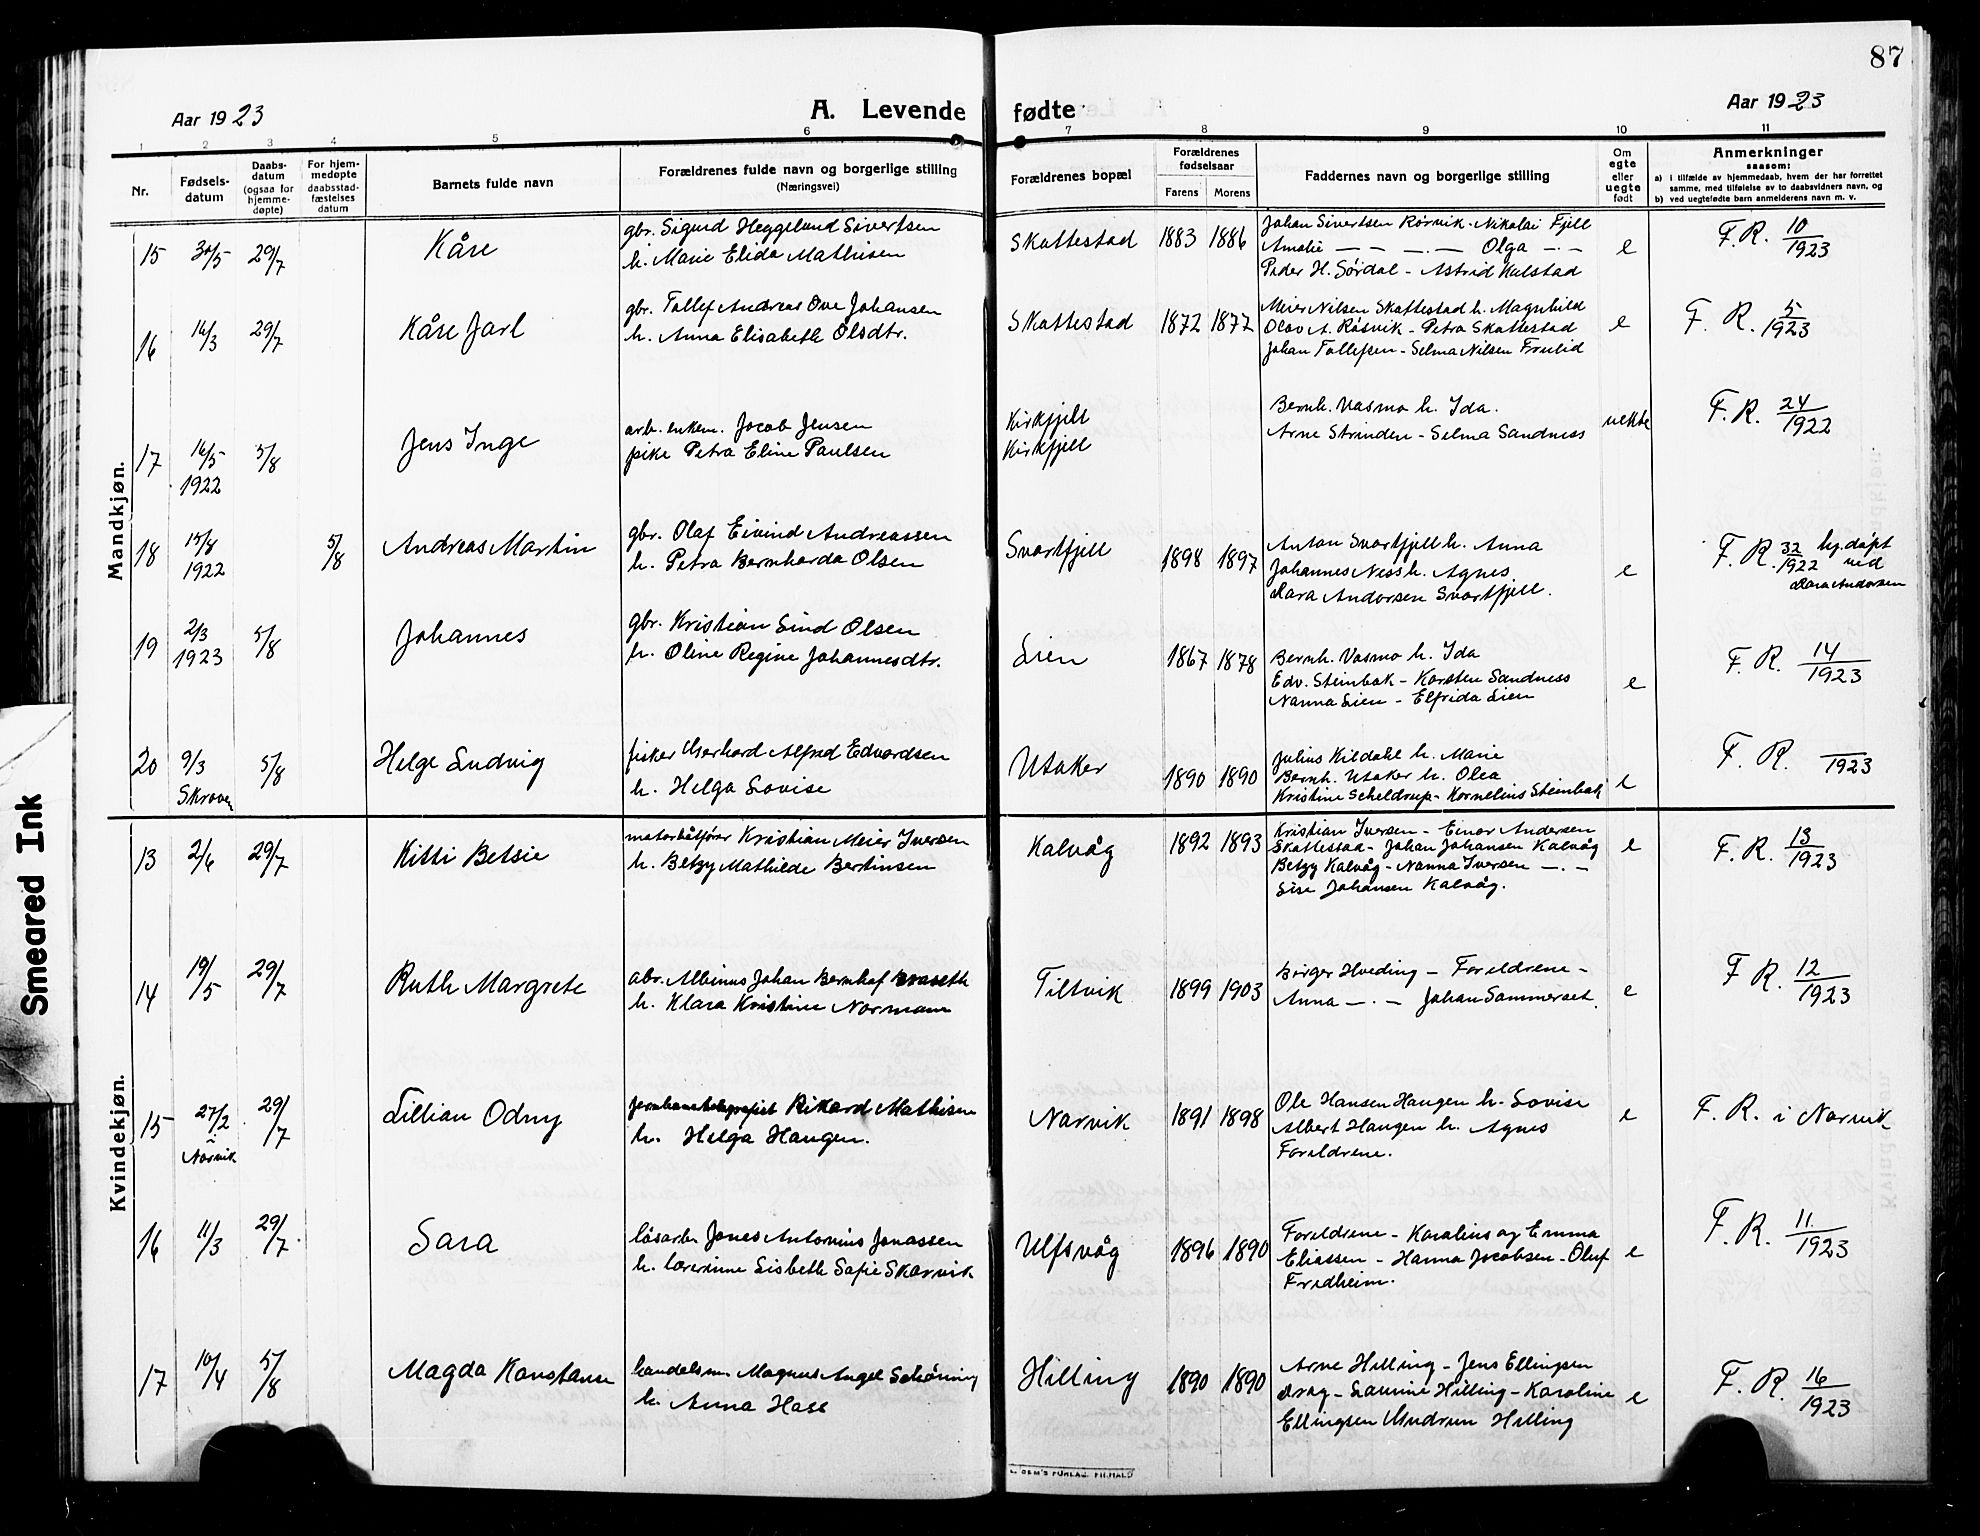 87
Aar 1923
A. Levende
fødte
Aar 1923
1 2 3 4 5 6 7 8 9 10 11
Nr.
Fødsels-
datum
Daabs-
datum
(ogsaa for
hjemme-
døpte)
For hjem-
medøpte
daabsstad-
fæstelses
datum
Barnets fulde navn
Forældrenes fulde navn og borgerlige stilling
(Næringsvei)
Forældrenes bopæl
Forældrenes
fødselsaar
Farens Morens
Faddernes navn og borgerlige stilling
Om
egte
eller
uegte
født
Anmerkninger
saasom:
a) i tilfælde av hjemmedaab, hvem der har forrettet
samme, med tilføielse av to daabsvidners navn, og
b) ved uegtefødte barn anmelderens navn m. v.
Mandkjøn.
15 30/5 29/7 Kåre
gbr. Sigurd Heggelund Sivertsen
h. Marie Elida Mathisen
Skottestad 1883 1886
Johan Sivertsen Rørvik - Nikolai Fjell
Amalie — — —.— Olga —.—
Peder H. Sørdal - Astrid Kulstad
e F. R. 10/1923
16 14/3 29/7 Kåre Jarl
gbr. Tollef Andreas Ove Johansen
h. Anna Elisabeth Olsdtr.
Skottestad 1872 1877
Meier Nilsen Skottestad h. Magnhild
Olav A. Røsvik - Petra Skottestad
Johan Tollefsen - Selma Nilsen Frulid
e F. R. 5/1923
17 14/5 1922 5/8 Jens Inge
arb. enkem. Jacob Jensen
pike Petra Eline Paulsen
Kirkfjell
Kirkfjell
Bernh. Vasmo h. Ida.
Arne Strinden - Selma Sandness
uekte F. R. 24/1922
18 15/8 1922 5/8 Andreas Martin
gbr. Olaf Eivind Andreassen
h. Petra Bernharda Olsen
Svartfjell 1898 1897
Anton Svartfjell h. Anna
Johannes Ness h. Agnes
Lara Andersen Svartfjell.
e F. R. 32/1922 hj.døpt
ved
Lara Andersen
19 2/3 1923 5/8 Johannes
gbr. Kristian Lind Olsen
h. Oline Regine Johannesdtr.
Lien 1867 1878
Bernh. Vasmo h. Ida
Edv. Steinbak - Karsten Sandness
Nanna Lien - Elfrida Lien
e F. R. 14/1923
20 9/3 Skroven 5/8 Helge Ludvig
fisker Gerhard Alfred Edvardsen
h. Helga Lovise
Utaker 1890 1890
Julius Kildahl h. Marie
Bernh. Utaker h. Olea
Kristine Scheldrup - Kornelius Steinbak
e F. R. 1923
Kvindekjøn.
13 2/6 29/7 Kitti Betsie
motorbåtfører Kristian Meier Iversen
h. Betzy Mathilde Bertinsen
Kalvåg 1892 1893
Kristian Iversen - Einar Andersen
Skottestad - Johan Johansen Kalvåg
Betzy Kalvåg - Nanna Iversen —.—
Lise Johansen Kalvåg.
e F. R. 13/1923
14 19/5 29/7 Ruth Margrete
abr. Albinus Johan Bernhof
h. Klara Kristine Normann
Tiltvik 1899 1903
Birger Hveding — Foreldrene -
Anna —.— Johan Sommerset.
e F. R. 12/1923
15 27/2 i Narvik 29/7 Lillian Odny
jernbanetelegrafist Rikard Mathisen
h. Helga Haugen.
Narvik 1891 1898
Ole Hansen Haugen h. Lovise
Albert Haugen h. Agnes
Foreldrene.
e F. R. i Narvik
16 11/3 29/7 Sara
løsarb. Jones Antonius Jonassen
h. lærerinne Lisbeth Sofie Skarvik
Ulfsvåg 1896 1890
Foreldrene - Karolius og Emma
Eliassen - Hanna Jacobsen - Oluf
Fredheim.
e F. R. 11/1923
17 10/4 5/8 Magda Konstanse
handelsm. Magnus Angel Schøning
h. Anna Hass
Hilling 1890 1890
Arne Hilling - Jens Ellingsen
Drag - Laurine Hilling - Karoline
Ellingsen Gudrun Hilling
e F. R. 16/1923
Smeared Ink